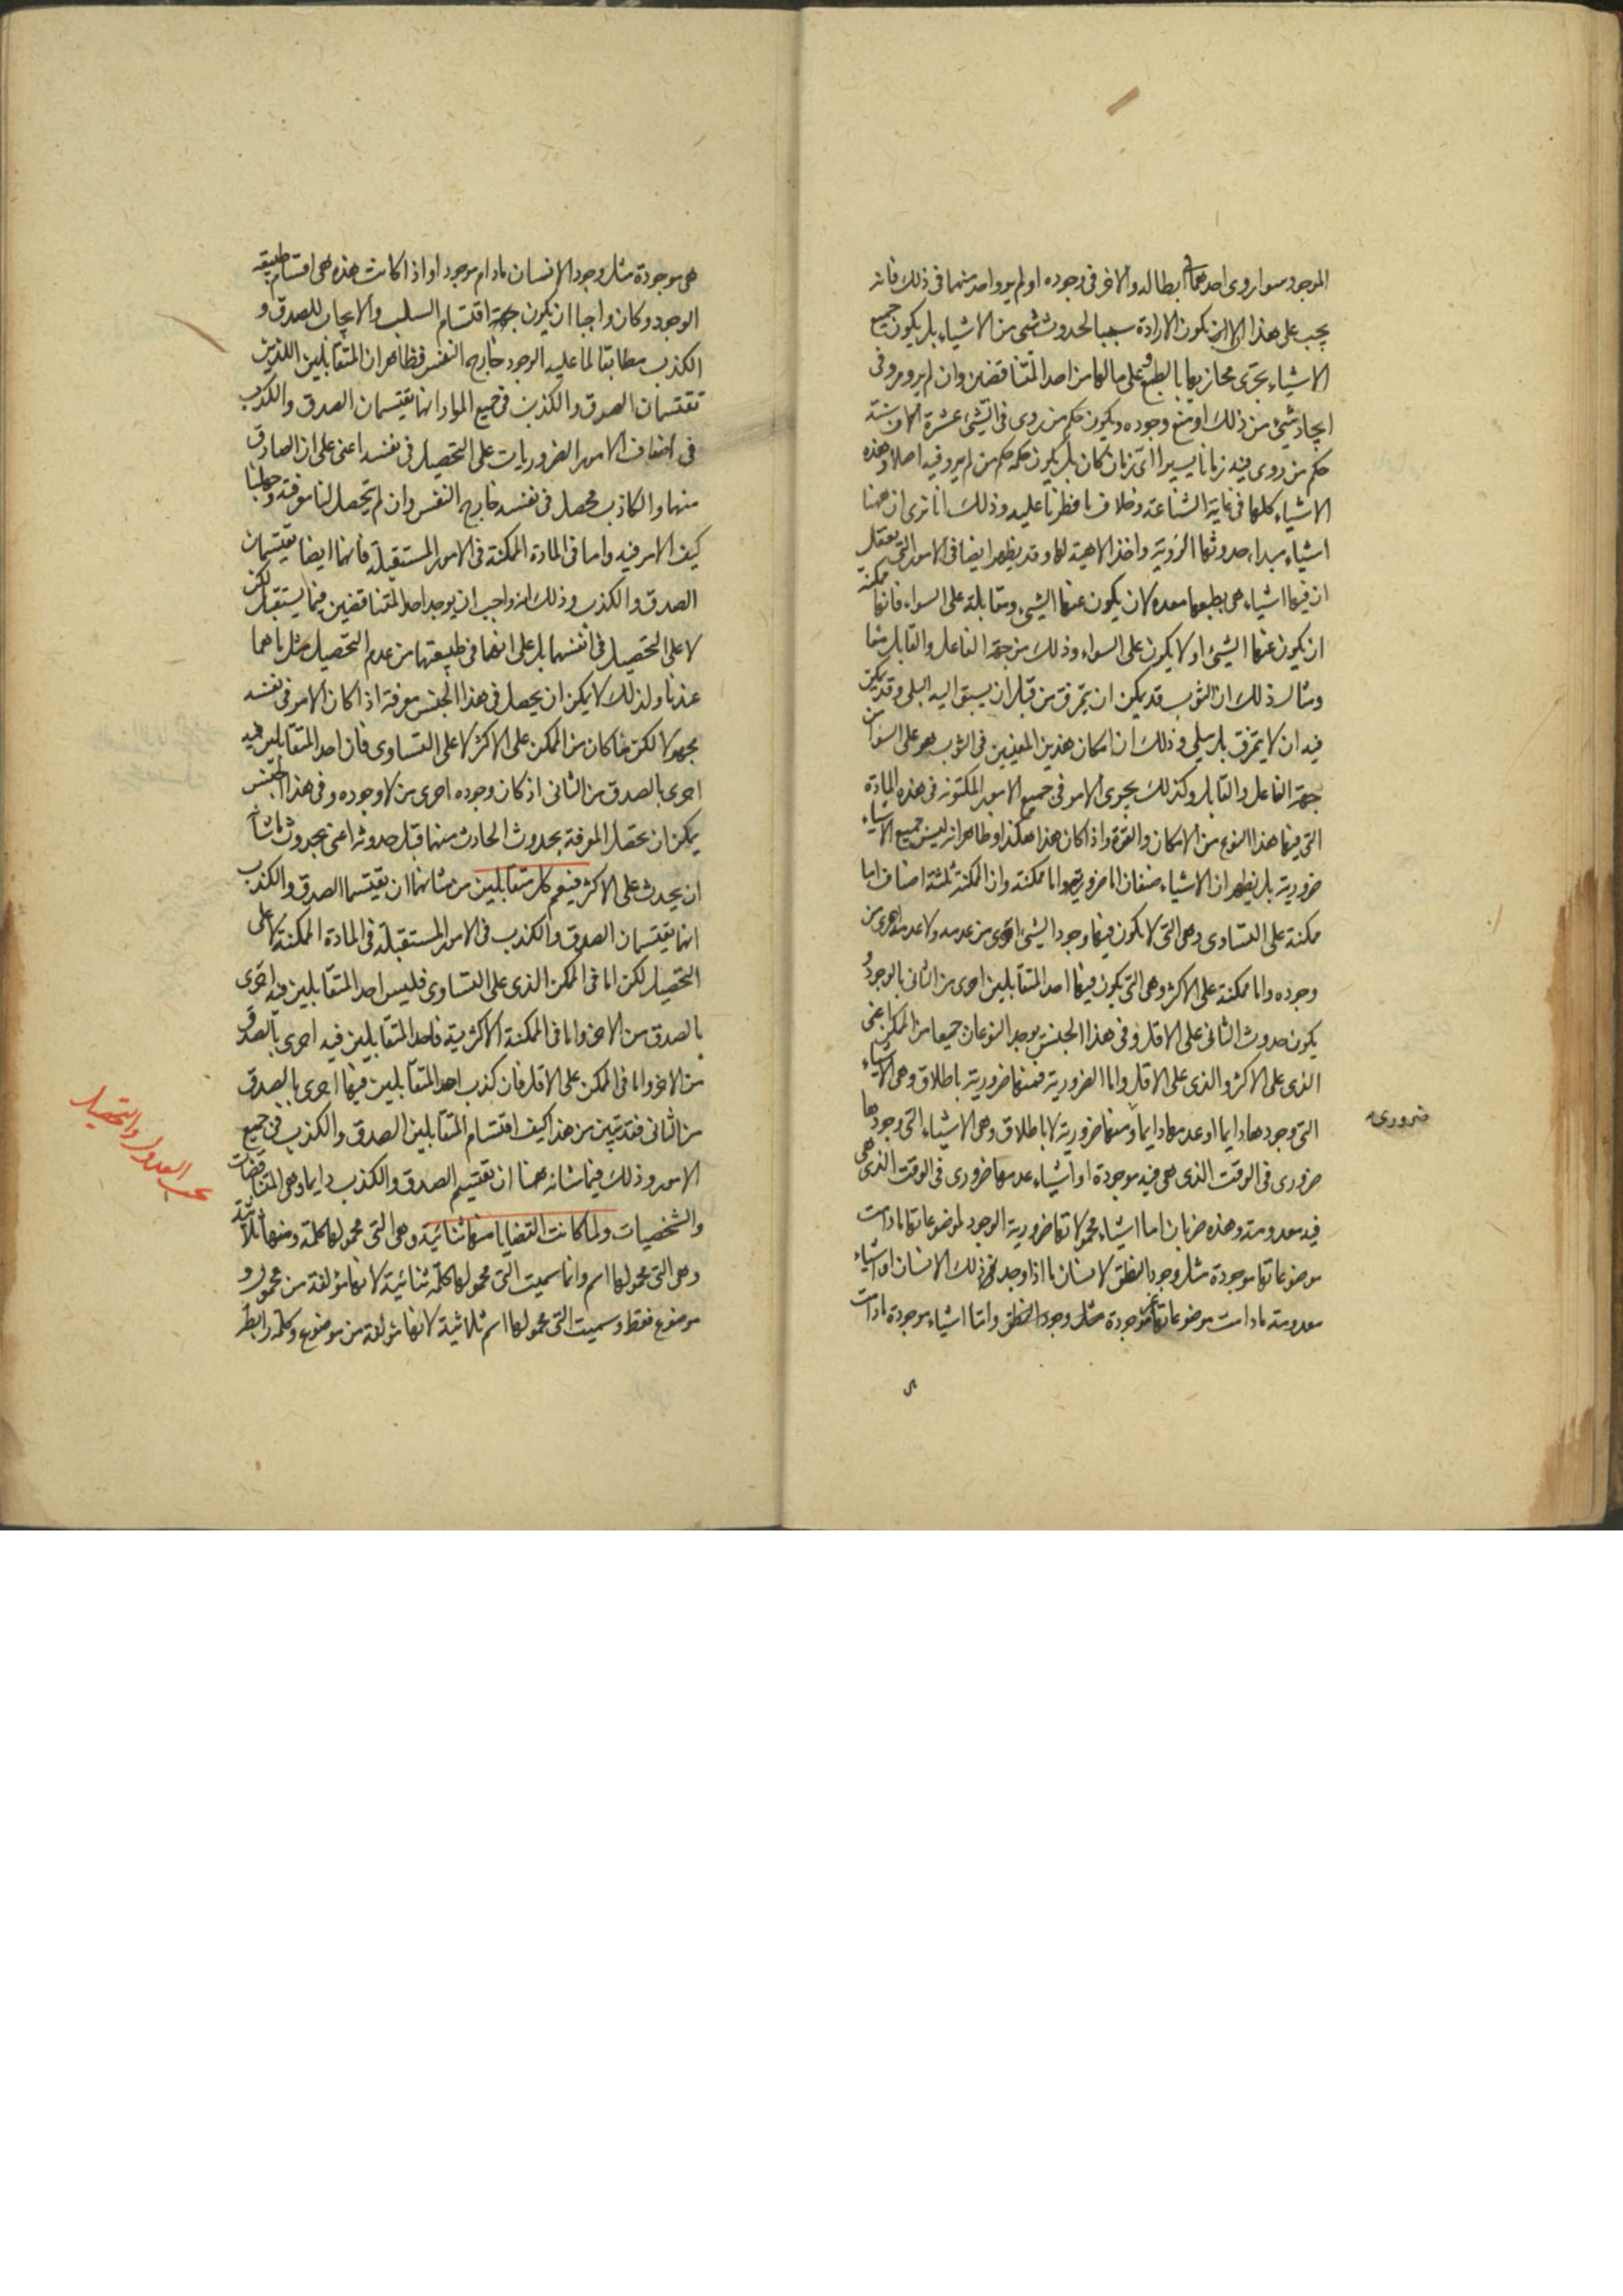 الموجود سوا روى احدهما فى ابطاله والاخر فى وجوده او لم يرو واحد منهما فى ذلك فانه
يجب على هذا الا تكون الارادة سببا لحدوث شى من الاشياء بل يكون جميع
الاشياء تجرى مجاريها بالطبع وعلى مالها من احد المتناقضين وان لم يرو مرو فى
ايجاد شى من ذلك او منع وجوده ويكون حكم من روى فى الشئ عشرة الاف سنة
حكم من روى فيه زمانا يسيرا اى زمان كان بل يكون حكمه حكم من لم يرو فيه اصلا وهذه
الاشياء كلها فى غاية الشناعة وخلاف ما فطرنا عليه وذلك انا نرى ان ههنا
اشياء مبداء حدوثها الروية واخذ الاهبة لها وقد يظهر ايضا فى الامور التى تعقل
ان فيها اشياء هى بطبعها معدة لان يكون عنها الشى ومقابله على السواء فانها ممكنة
ان يكون عنها الشئ او لا يكون على السواء وذلك من جهة الفاعل والقابل معا
ومثال ذلك ان الثوب قد يمكن ان يتمزق من قبل ان يسبق اليه البلى وقد يمكن
فيه ان لا يتمزق بل يبلى وذلك ان امكان هذين المعنيين فى الثوب هو على السوا من
جهة الفاعل والقابل وكذلك يجرى الامر فى جميع الامور المتكونة فى هذه المادة
التى فيها هذا النوع من الامكان والقوة واذا كان هذا هكذا وظاهر انه ليس جميع الاشياء
ضرورية بل يظهر ان الاشياء صنفان اما ضرورية واما ممكنة وان الممكنة ثلثة اصناف اما
ممكنة على التساوى وهى التى لا يكون فيها وجود الشئ احرى من عدمه ولا عدمه احرى من
وجوده واما ممكنة على الاكثر وهى التى يكون فيها احد المتقابلين احرى من الثانى بالوجود و
يكون حدوث الثانى على الاقل وفى هذا الجنس يوجد النوعان جميعا من الممكن اعنى
الذى على الاكثر والذى على الاقل واما الضرورية فمنها ضرورية باطلاق وهى الاشياء
التى وجودها دايما او عدمها دايما ومنها ضرورية لا باطلاق وهى الاشياء التى وجودها
ضرورى فى الوقت الذى هى فيه موجودة او اشياء عدمها ضرورى فى الوقت الذى هى
فيه معدومة وهذه ضربان اما اشياء محمولاتها ضرورية الوجود لموضوعاتها مادامت
موضوعاتها موجودة مثل وجود النطق لانسان ما اذا وجد ذلك الانسان او اشياء
معدومة مادامت موضوعاتها غير موجودة مثل وجود النطق واما اشياء موجودة مادامت
ضرورى
هى موجودة مثل وجود الانسان مادام موجودا واذا كانت هذه هى اقسام طبيعة
الوجود وكان واجبا ان يكون جهة اقتسام السلب والايجاب للصدق و
الكذب مطابقا لما عليه الوجود خارج النفس فظاهر ان المتقابلين اللذين
تقتسمان الصدق والكذب فى جميع المواد انهما يقتسمان الصدق والكذب
فى اصناف الامور الضروريات على التحصيل فى نفسه اعنى على ان الصادق
منهما والكاذب محصل فى نفسه خارج النفس وان لم يتحصل لنا معرفته وجهلنا
كيف الامر فيه واما فى المادة الممكنة فى الامور المستقبلة فانهما ايضا يقتسمان
الصدق والكذب وذلك انه واجب ان يوجد احد المتناقضين فيما يستقبل لكن
لا على التحصيل فى انفسهما بل على انهما فى طبيعتهما من عدم التحصيل مثل ما هما
عندنا ولذلك لا يمكن ان يحصل فى هذا الجنس معرفة اذا كان الامر فى نفسه
مجهولا لكن ما كان من الممكن على الاكثر لا على التساوى فان احد المتقابلين فيه
احرى بالصدق من الثانى اذ كان وجوده احرى من لا وجوده وفى هذا الجنس
يمكن ان تحصل المعرفة بحدوث الحادث منها قبل حدوثه اعنى بحدوث ما شانه
ان يحدث على الاكثر فيعم كل متقابلين من شانهما ان يقتسما الصدق والكذب
انهما يقتسمان الصدق والكذب فى الامور المستقبلة فى المادة الممكنة لا على
التحصيل لكن اما فى الممكن الذى على التساوى فليس احد المتقابلين فيه احرى
بالصدق من الاخر واما فى الممكنة الاكثرية فاحد المتقابلين فيه احرى بالصدق
من الاخر واما فى الممكن على الاقل فان كذب احد المتقابلين فيها احرى بالصدق
من الثانى فقد تبين من هذا كيف اقتسام المتقابلين الصدق والكذب فى جميع
الامور وذلك فيما شانه ههنا ان تقتسم الصدق والكذب دايما وهى المتناقضات
والشخصيات ولما كانت القضايا منها ثنائية وهى التى محمولها كلمة ومنها ثلاثية
وهى التى محمولها اسم وانما سميت التى محمولها كلمة ثنائية لانها مؤلفة من محمول و
موضوع فقط وسميت التى محمولها اسم ثلاثية لانها مؤلفة من موضوع وكلمة رابطة
العدول والتحصيل